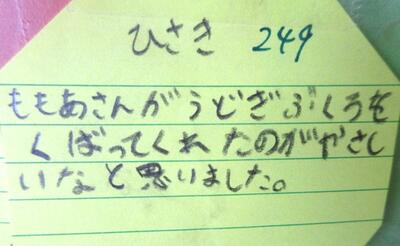 ひさき 249
ももあさんがうどぎぶくろを
くばってくれたのがやさし
いなと思いました。